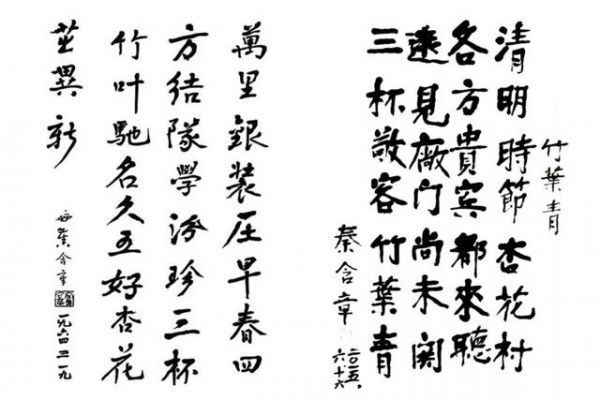 竹葉青
清明時節杏花村
各方貴賓都來聽
遠見廠门尚未
三杯敬客竹葉青
秦含章
二〇一五六十六
萬里銀装压早春四
方结隊學汾珍三杯
竹叶馳名久五好杏花
異新
含章
一九六四三一九